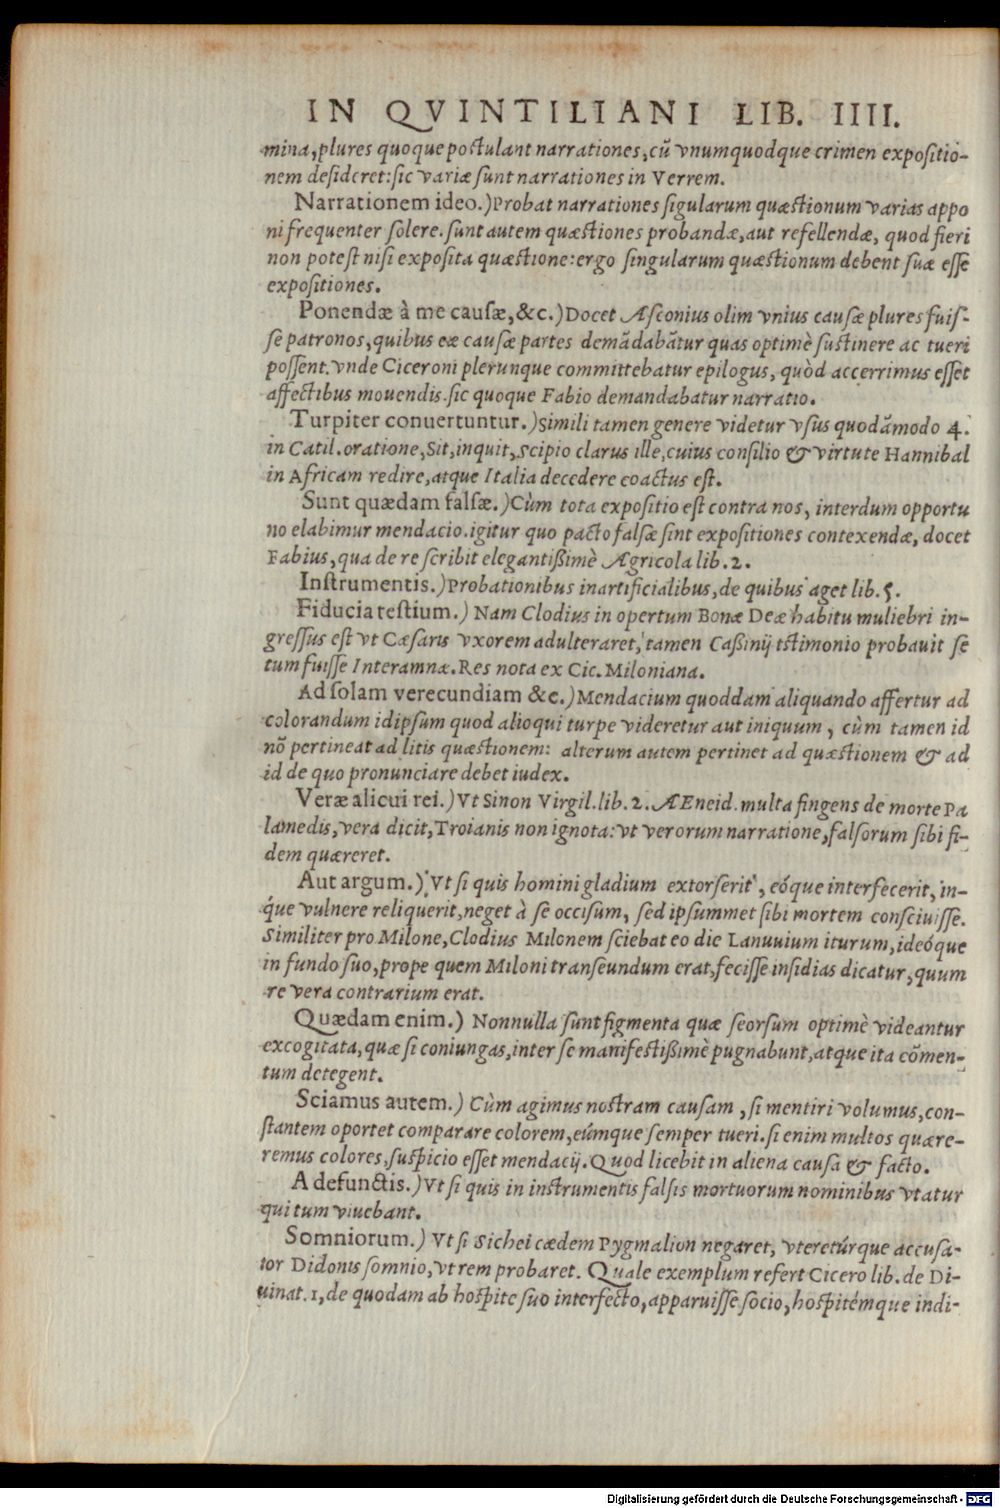 IN QVINTILIANI LIB. IIII.
mina, plures quoque postulant narrationes, cũ vnumquodque crimen expositio-
nem desideret: sic variæ sunt narrationes in Verrem.
Narrationem ideo.) Probat narrationes sigularum quæstionum varias appo
ni frequenter solere. sunt autem quæstiones probandæ, aut refellendæ, quod fieri
non potest nisi exposita quæstione: ergo singularum quæstionum debent suæ esse
expositiones.
Ponendæ à me causæ, &c.) Docet Asconius olim vnius causæ plures fuis-
se patronos, quibus eæ causæ partes demãdabãtur quas optimè sustinere ac tueri
possent. vnde Ciceroni plerunque committebatur epilogus, quòd accerrimus esset
affectibus mouendis. sic quoque Fabio demandabatur narratio.
Turpiter conuertuntur.) Simili tamen genere videtur vsus quodãmodo 4.
in Catil. oratione, Sit, inquit, Scipio clarus ille, cuius consilio & virtute Hannibal
in Africam redire, atque Italia decedere coactus est.
Sunt quædam falsæ.) Cùm tota expositio est contra nos, interdum opportu
no elabimur mendacio. igitur quo pacto falsæ sint expositiones contexendæ, docet
Fabius, qua de re scribit elegantißimè Agricola lib. 2.
Instrumentis.) Probationibus inartificialibus, de quibus aget lib. 5.
Fiducia testium.) Nam Clodius in opertum Bonæ Deæ habitu muliebri in-
gressus est vt Cæsaris vxorem adulteraret, tamen Caßinij tstimonio probauit se
tum fuisse Interamnæ. Res nota ex Cic. Miloniana.
Ad solam verecundiam &c.) Mendacium quoddam aliquando affertur ad
colorandum idipsum quod alioqui turpe videretur aut iniquum, cùm tamen id
nõ pertineat ad litis quæstionem: alterum autem pertinet ad quæstionem & ad
id de quo pronunciare debet iudex.
Veræ alicui rei.) Vt Sinon Virgil. lib. 2. AEneid. multa fingens de morte Pa
lamedis, vera dicit, Troianis non ignota: vt verorum narratione, falsorum sibi fi-
dem quæreret.
Aut argum.) Vt si quis homini gladium extorserit, eóque interfecerit, in-
que vulnere reliquerit, neget à se occisum, sed ipsummet sibi mortem consciuisse.
Similiter pro Milone, Clodius Milonem sciebat eo die Lanuuium iturum, ideóque
in fundo suo, prope quem Miloni transeundum erat, fecisse insidias dicatur, quum
re vera contrarium erat.
Quædam enim.) Nonnulla sunt figmenta quæ seorsum optimè videantur
excogitata, quæ si coniungas, inter se manifestißimè pugnabunt, atque ita cõmen-
tum detegent.
Sciamus autem.) Cùm agimus nostram causam, si mentiri volumus, con-
stantem oportet comparare colorem, eúmque semper tueri. si enim multos quære-
remus colores, suspicio esset mendacij. Quod licebit in aliena causa & facto.
A defunctis.) Vt si quis in instrumentis falsis mortuorum nominibus vtatur
qui tum viuebant.
Somniorum.) Vt si Sichei cædem Pygmalion negaret, vteretúrque accusa-
tor Didonis somnio, vt rem probaret. Quale exemplum refert Cicero lib. de Di-
uinat. 1, de quodam ab hospite suo interfecto, apparuisse socio, hospitémque indi-
Digitalisierung gefördert durch die Deutsche Forschungsgemeinschaft - DFG